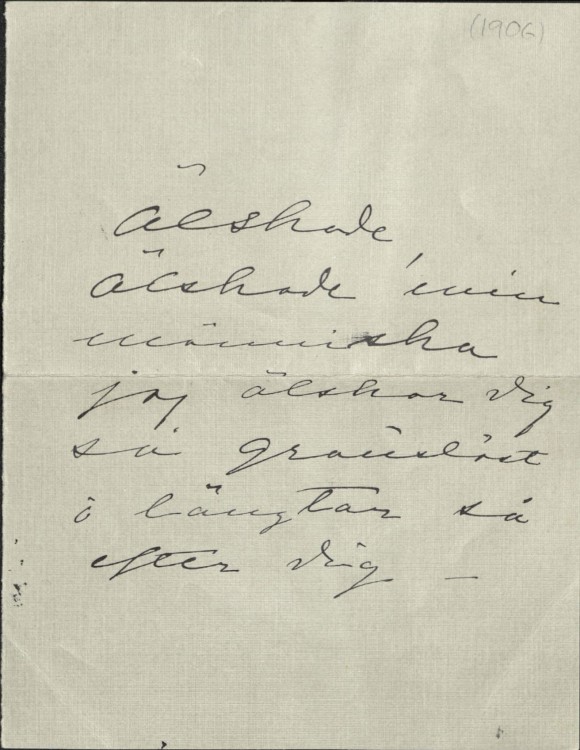 (1906)
Älskade,
älskade min
människa
jag älskar dig
så gränslöst
o längtar så
efter dig –